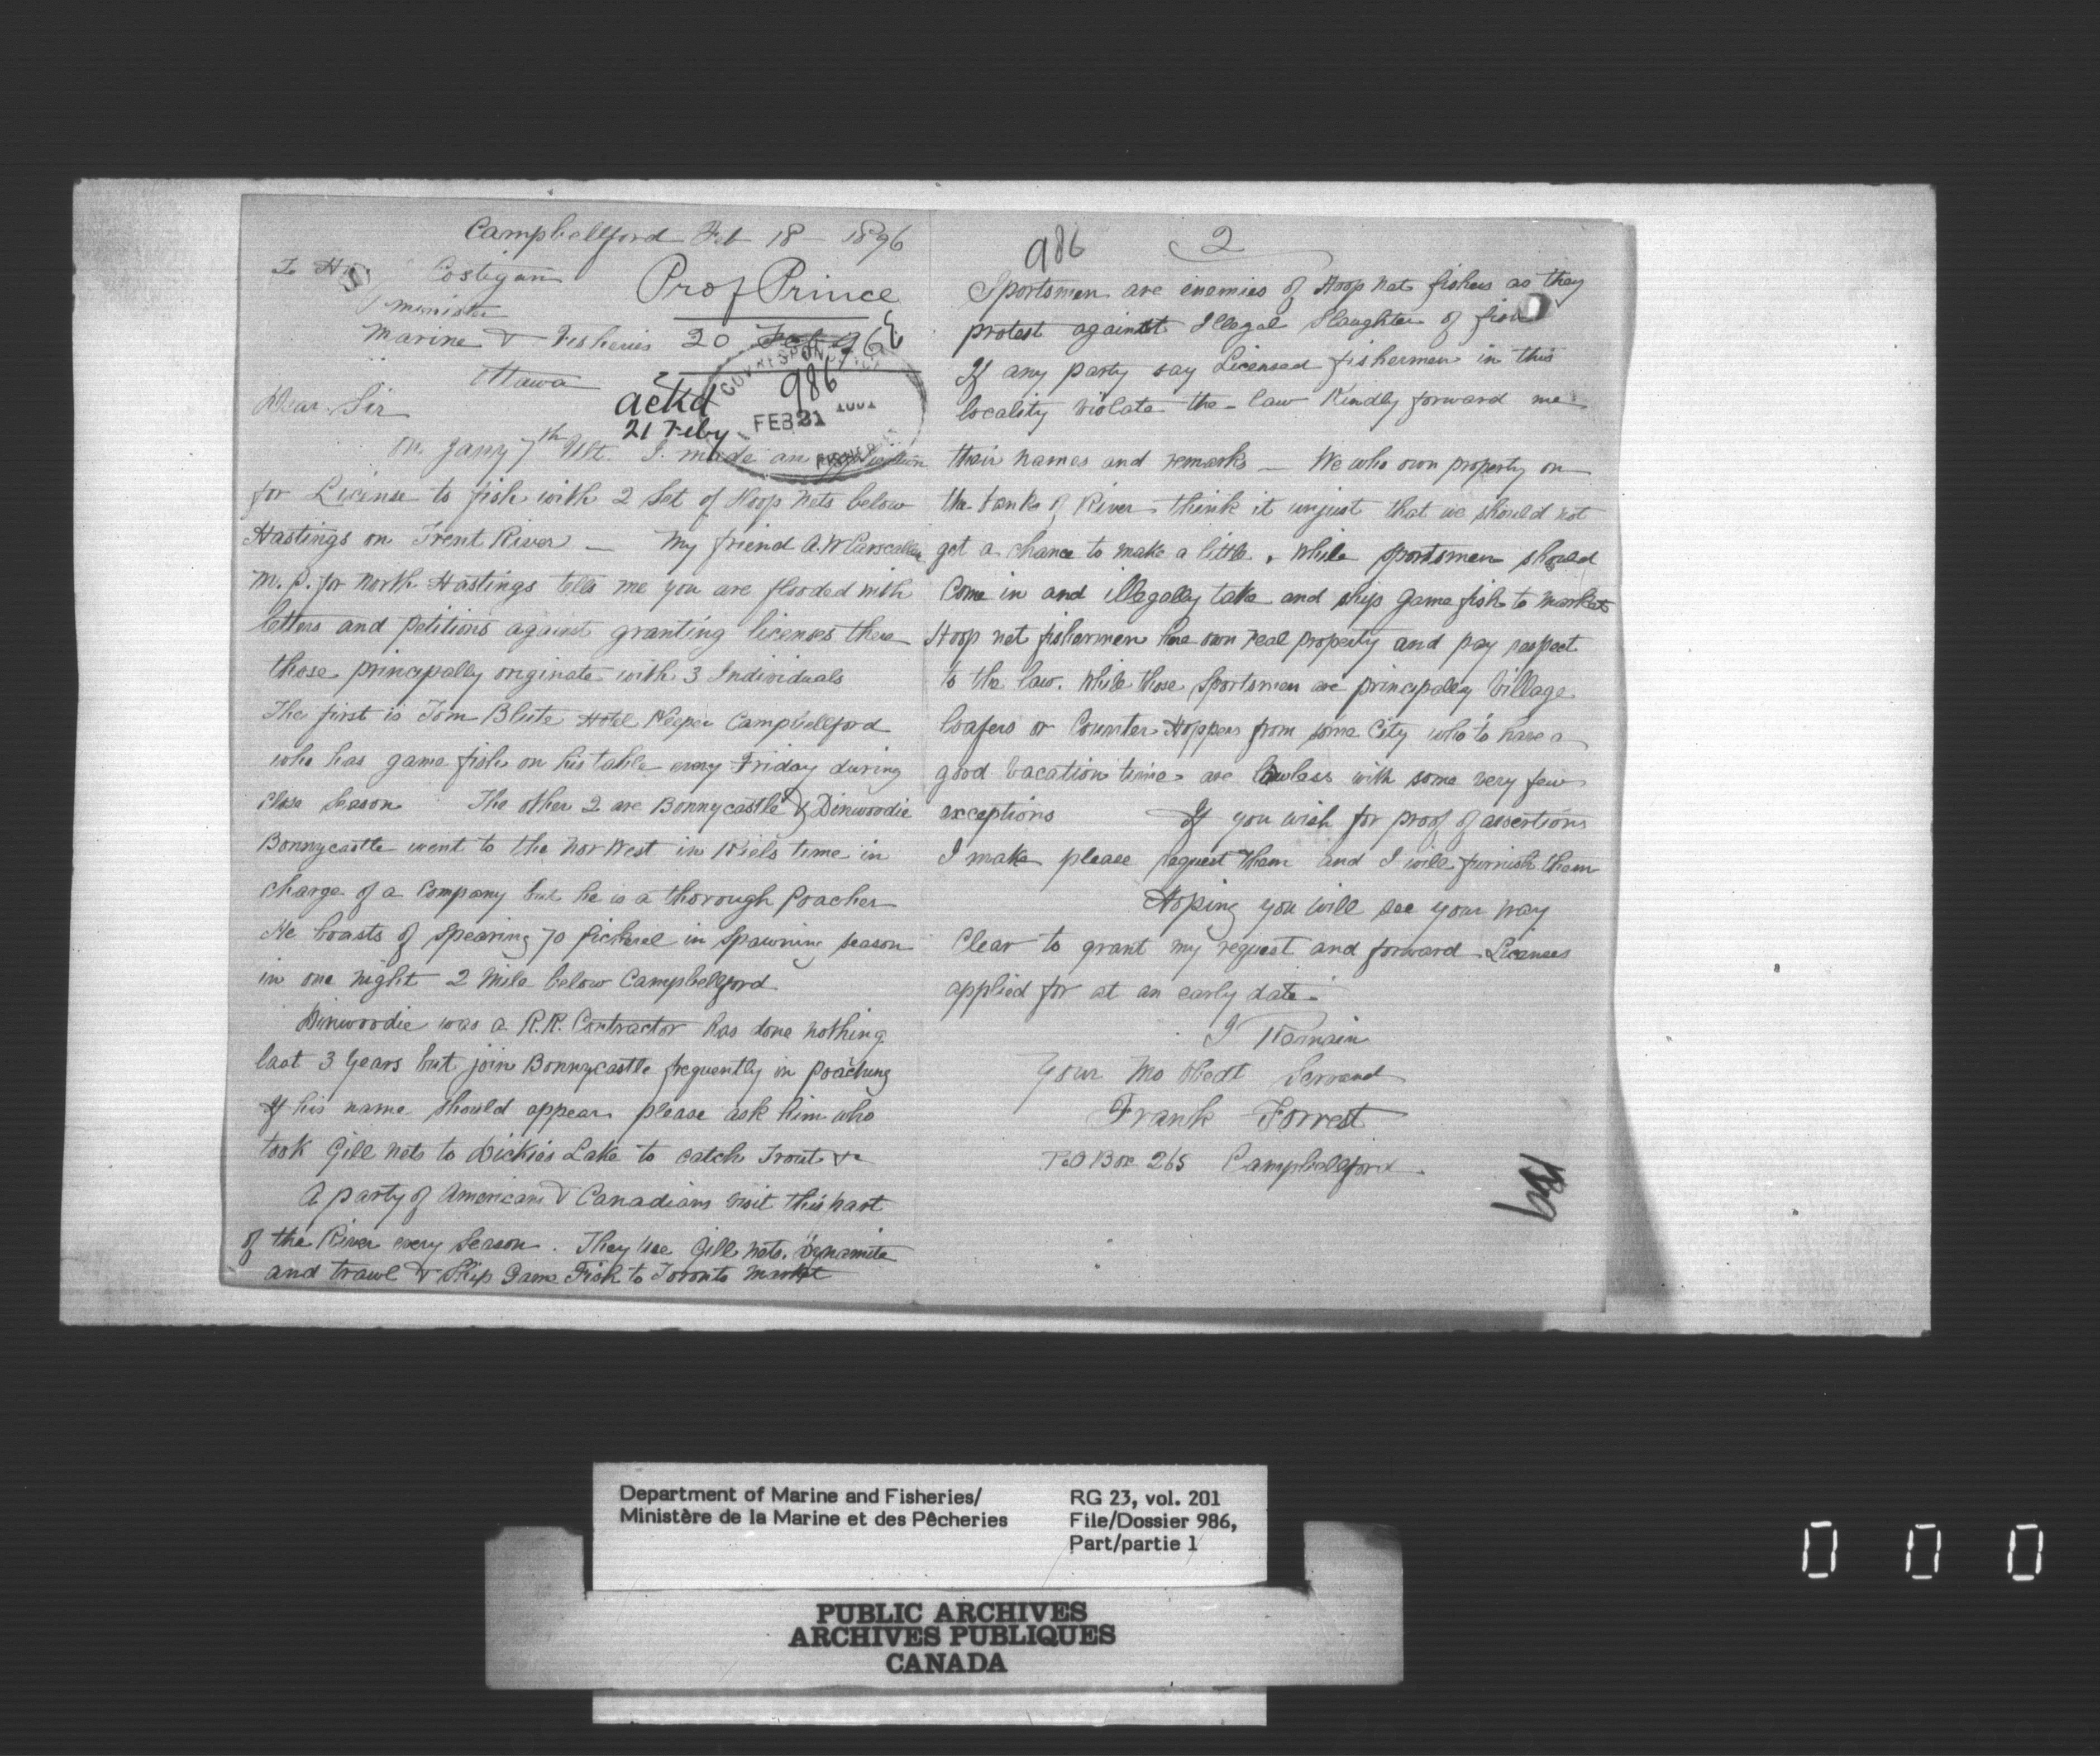 Campbellford Feb 18 - 1896
To Hn Costigan
Minister
Marine & Fisheries
Ottawa
Prof Prince
20 Feb 96
ackd
21 Feby
986
FEB 21
Dear Sir
On Jany 7th Ult. I made an application
for License to fish with 2 Set of Hoop Nets below
Hastings on Trent River — My friend A. W Carscallen
M. P. for North Hastings tells me you are flooded with
letters and petitions against granting licenses there
those principally originate with 3 Individuals
The first is Tom Blute Hotel Keeper Campbellford
who has game fish on his table every Friday during
close Season The other 2 are Bonnycastle & Dinwoodie
Bonnycastle went to the Nor West in Riels time in
charge of a Company but he is a thorough Poacher
He boasts of Spearing 70 Pickerel in Spawning season
in one night 2 Mile below Campbellford
Dinwoodie was a R.R. Contractor has done nothing
last 3 Years but join Bonnycastle frequently in poaching
If his name should appear please ask him who
took Gill nets to Dickies Lake to catch Trout &c
A party of Americans & Canadians visit this part
of the River every Season. They use Gill nets. Dynamite
and trawl & Ship Game Fish to Toronto Market
986
2
Sportsmen are enemies of Hoop Net fishers as they
protest against Illegal Slaughter of fish
If any party say Licensed fishermen in this
locality violate the law Kindly forward me
their names and remarks — We who own property on
the banks of River think it unjust that we should not
get a chance to make a little. While Sportsmen should
Come in and illegally take and ship Game fish to Market
Hoop net fishermen here own real property and pay respect
to the law. While those Sportsmen are principally Village
loafers or Counter Hoppers from some City who to have a
good vacation time are lawless with some very few
exceptions If you wish for proof of assertions
I make please request them and I will furnish them
Hoping you will see your way
Clear to grant my request and forward Licenses
applied for at an early date
I Remain
Your Mo Obedt Servand
Frank Forrest
P.O Box 265 Campbellford
Department of Marine and Fisheries/
Ministère de la Marine et des Pêcheries
RG 23, vol. 201
File/Dossier 986,
Part/partie 1
PUBLIC ARCHIVES
ARCHIVES PUBLIQUES
CANADA
0 0 0